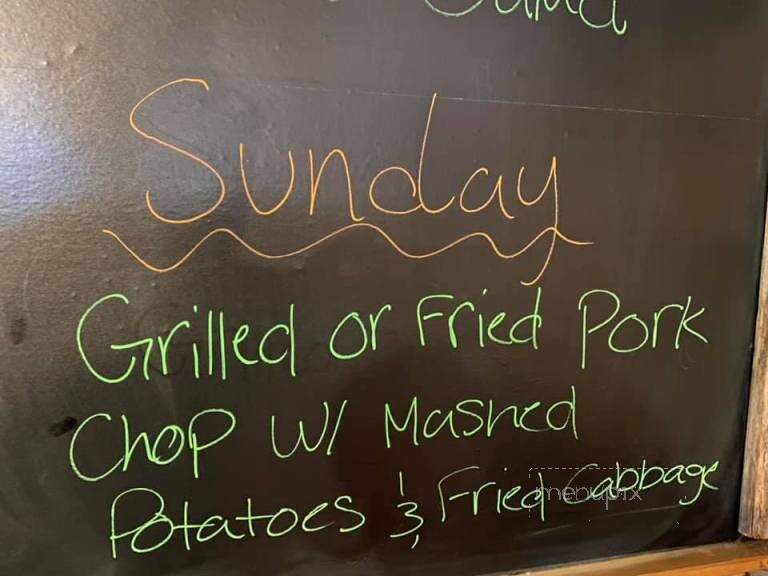 Sunday
Grilled or Fried Pork
Chop w/ Mashed
Potatoes & Fried Cabbage
menupix